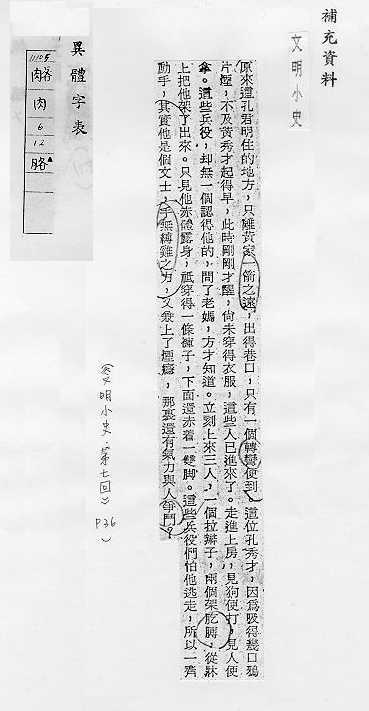 補充資料
文明小史
原來這孔君明住的地方，只離黃家一箭之遠，出得巷口，只有一個轉彎便到。這位孔秀才，因爲吸得幾口鴉
片煙，不及黃秀才起得早，此時剛剛才醒，尚未穿得衣服，這些人已進來了。走進上房，見狗便打，見人便
拿。這些兵役，却無一個認得他的，問了老媽，方才知道。立刻上來三人，一個拉辮子，兩個架肐膊，從牀
上把他架了出來。只見他赤體露身，祗穿得一條褲子，下面還赤着一雙脚。這些兵役們怕他逃走，所以一齊
動手，其實他是個文士，手無縛雞之力，又發上了煙癮，那裏還有氣力與人爭鬥？
《文明小史．第七回》 P36
異體字表
肉
6
12